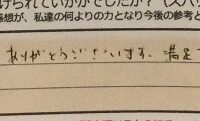 けられていかがでしたか？（スバ
想が、私達の何よりの力となり今後の参考と
ありがとうございます。満足